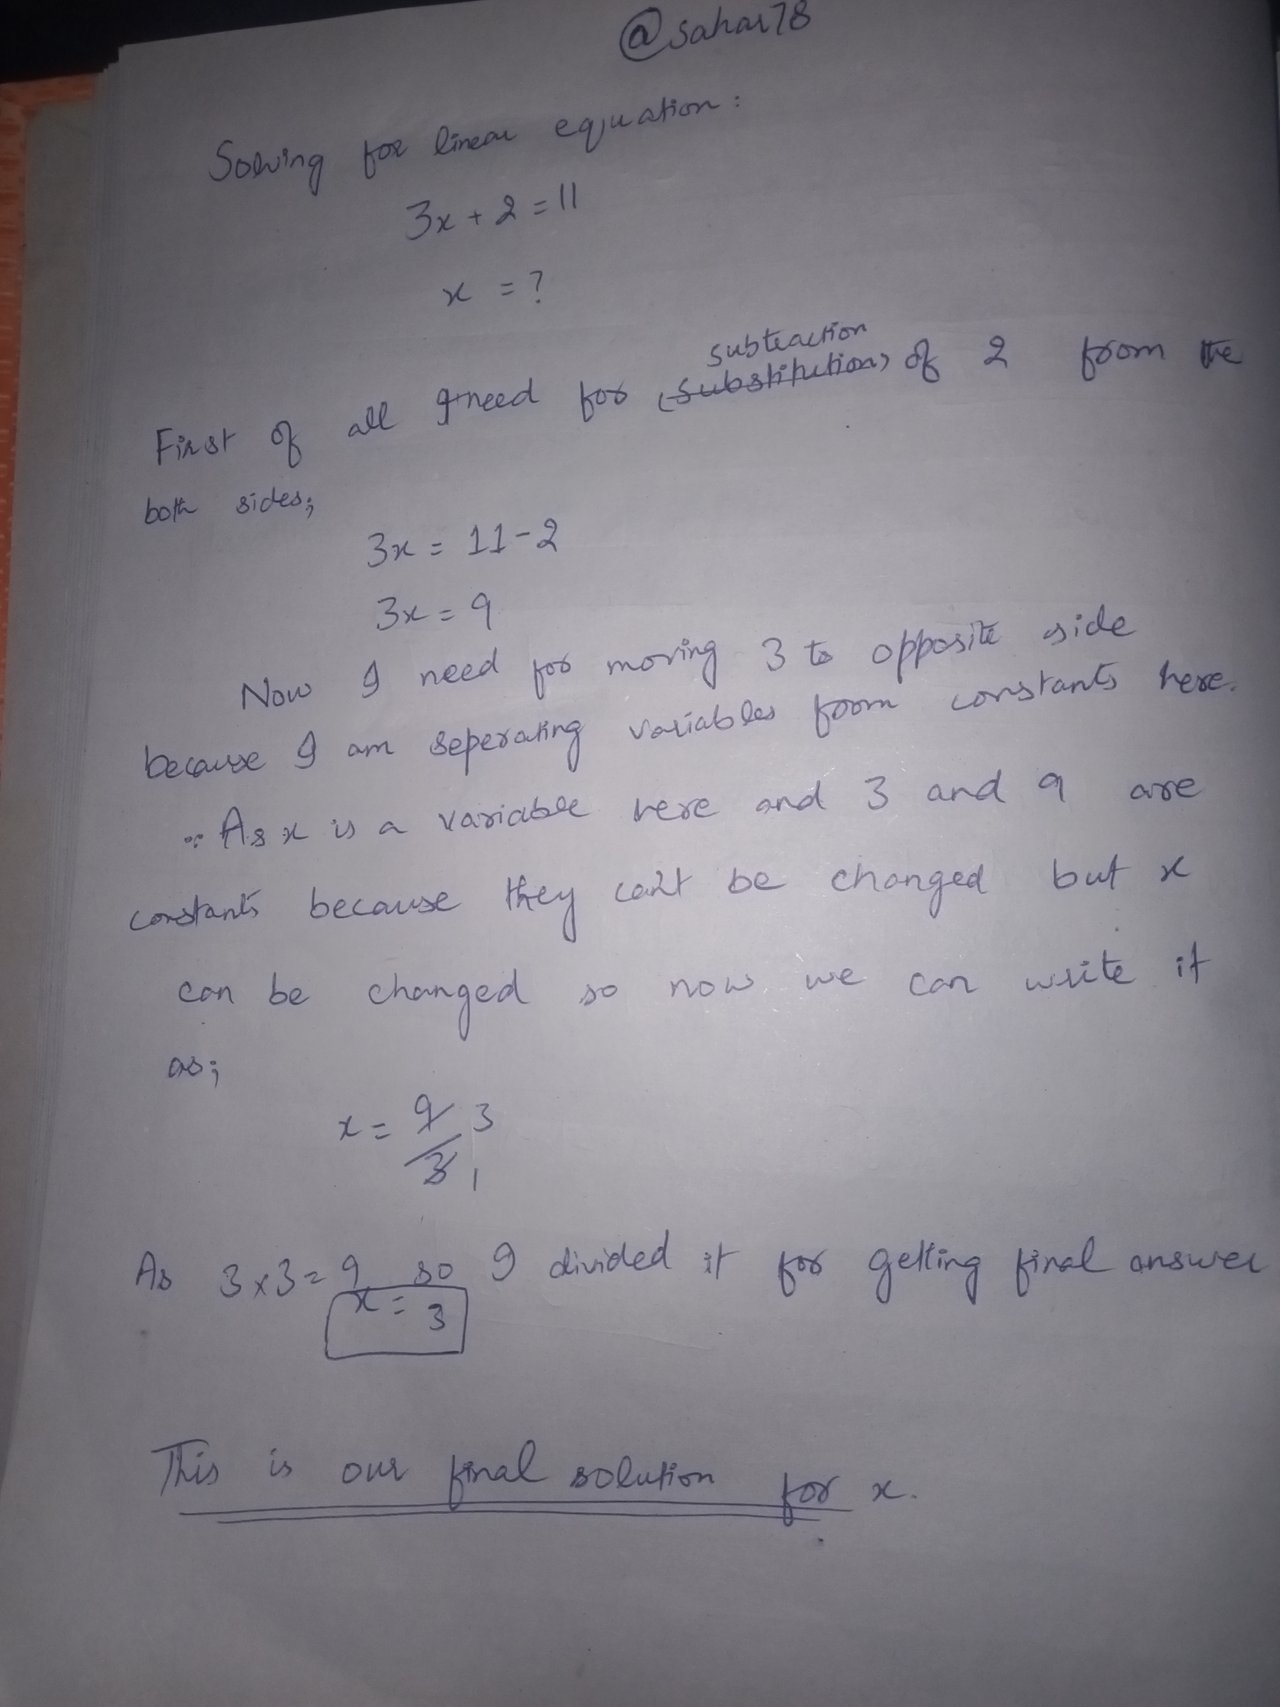 @sahar78
Solving for linear equation:
3x + 2 = 11
x = ?
subtraction
First of all I need for (substitution) of 2 from the
both sides;
3x = 11-2
3x = 9
Now I need for moving 3 to opposite side
because I am seperating variables from constants here.
∵ As x is a variable here and 3 and 9 are
constants because they can't be changed but x
can be changed so now we can write it
as;
x = 9/3 3 1
As 3x3 = 9 so I divided it for getting final answer
x = 3
This is our final solution for x.